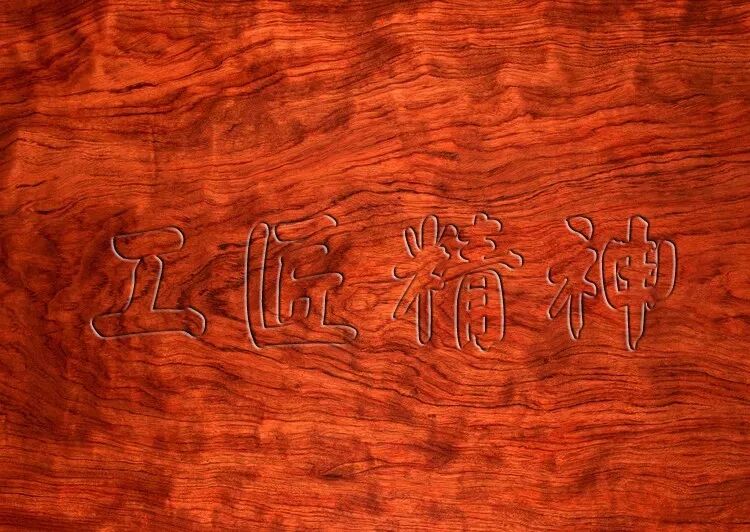 工匠精神